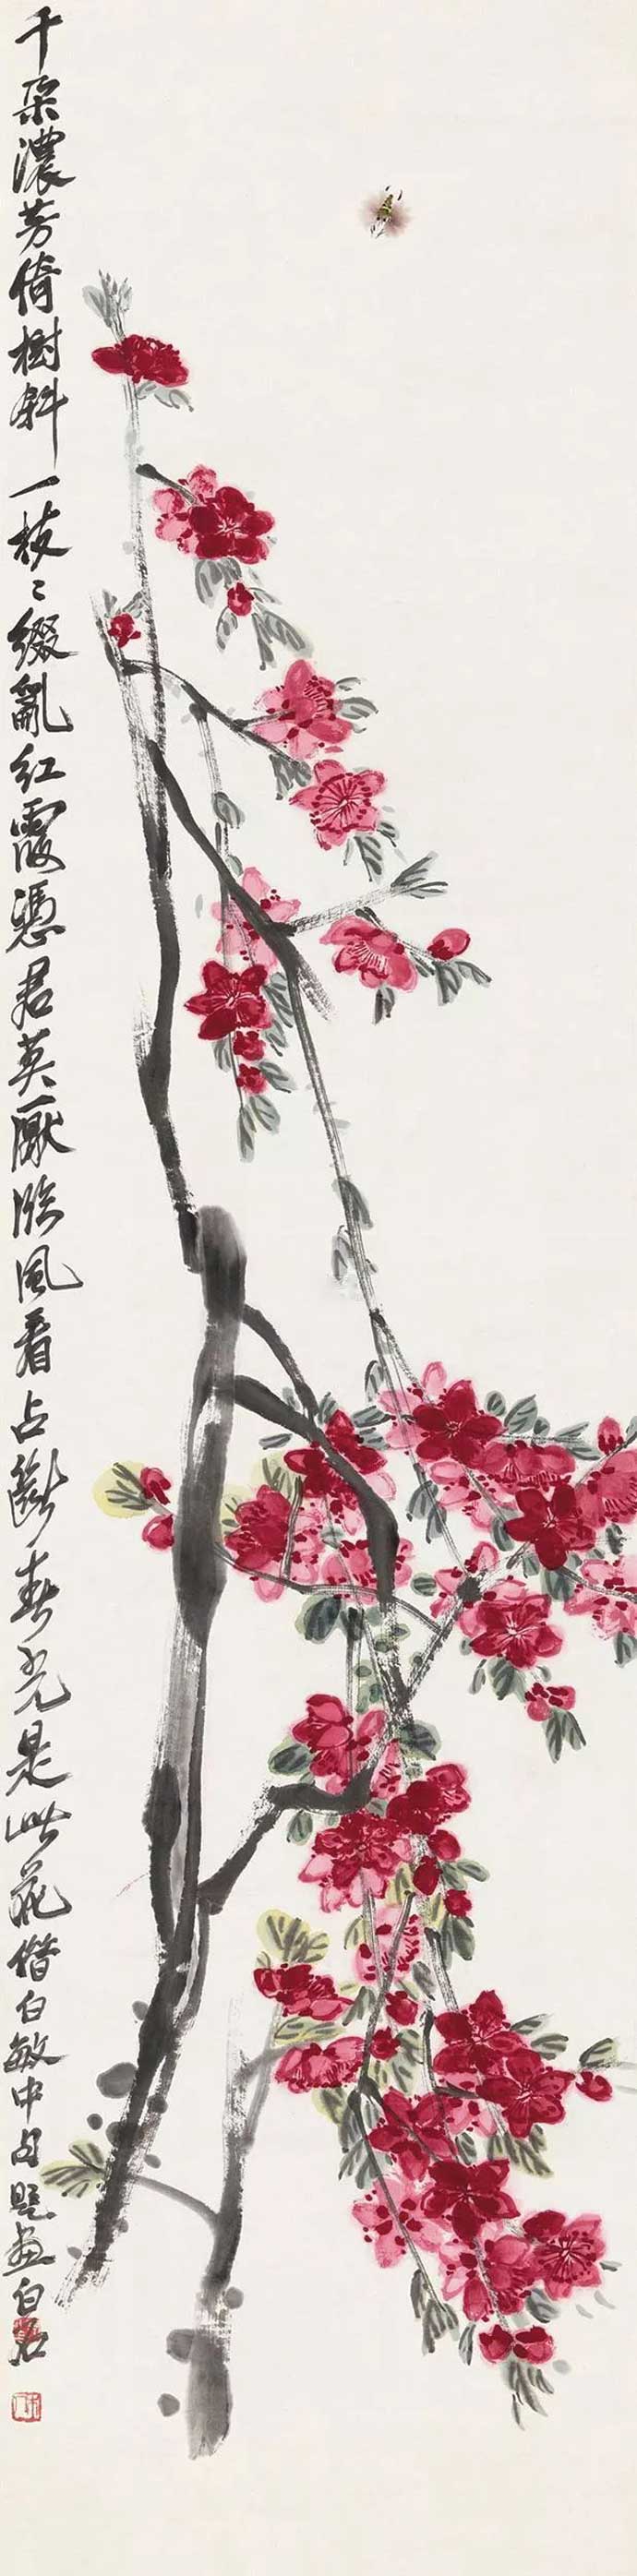 千朵濃芳倚樹斜一枝〻綴亂紅霞憑君莫厭臨風看占斷春光是此花借白敏中句題畫白石